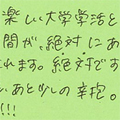 楽しい大学学活と
間が、絶対にあ
れます。絶対です
い、あと少しの辛抱。
!!!